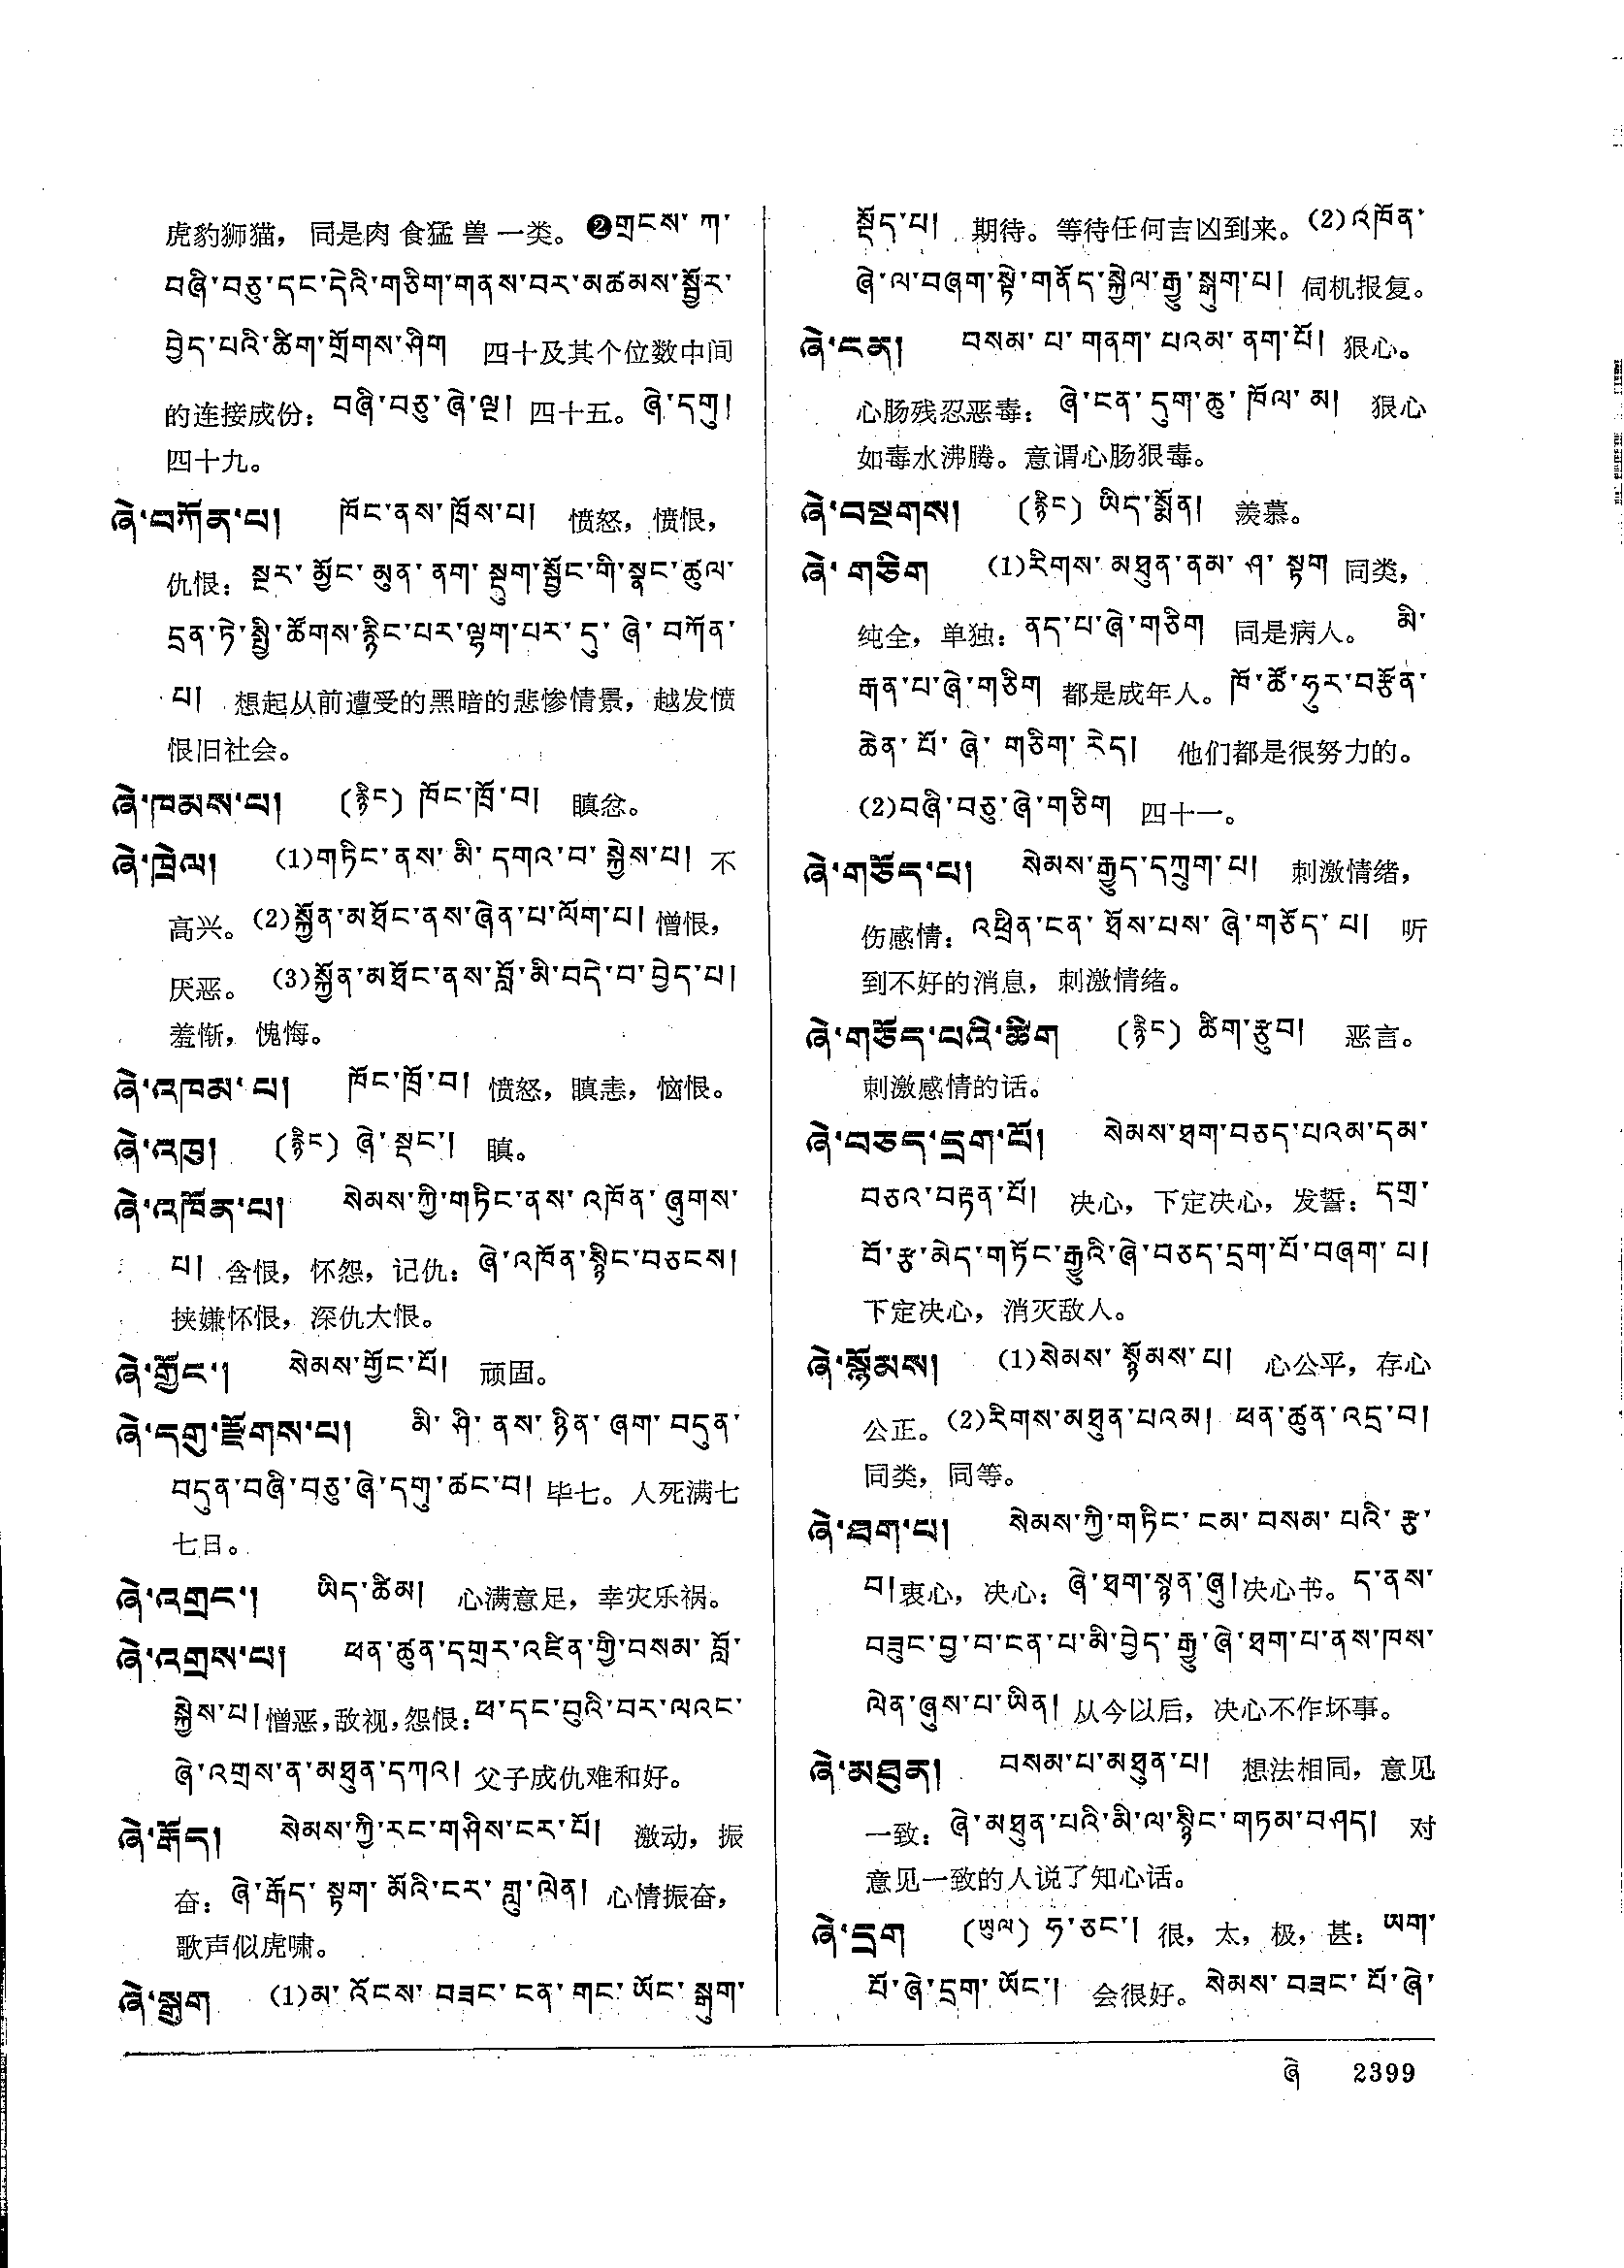 虎豹狮猫，同是肉食猛兽一类。❷གྲངས་ཀ་
བཞི་བཅུ་དང་དེའི་གཅིག་གནས་བར་མཚམས་སྦྱོར་
བྱེད་པའི་ཚིག་གྲོགས་ཤིག 四十及其个位数中间
的连接成份：བཞི་བཅུ་ཞེ་ལྔ། 四十五。ཞེ་དགུ།
四十九。
ཞེ་བཀོན་པ། ཁོང་ནས་ཁྲོས་པ། 愤怒，愤恨，
仇恨：སྔར་མྱོང་མུན་ནག་སྡུག་སྦྱོང་གི་སྣང་ཚུལ་
དྲན་ཏེ་སྤྱི་ཚོགས་རྙིང་པར་ལྷག་པར་དུ་ཞེ་བཀོན་
པ། 想起从前遭受的黑暗的悲惨情景，越发愤
恨旧社会。
ཞེ་ཁམས་པ། (རྙིང) ཁོང་ཁྲོ་བ། 瞋忿。
ཞེ་ཁྲེལ། (1)གཏིང་ནས་མི་དགའ་བ་སྐྱེས་པ། 不
高兴。(2)སྐྱོན་མཐོང་ནས་ཞེན་པ་ལོག་པ། 憎恨，
厌恶。(3)སྐྱོན་མཐོང་ནས་བློ་མི་བདེ་བ་བྱེད་པ།
羞惭，愧悔。
ཞེ་འཁམ་པ། ཁོང་ཁྲོ་བ། 愤怒，瞋恚，恼恨。
ཞེ་འཁུ། (རྙིང) ཞེ་སྡང་། 瞋。
ཞེ་འཁོན་པ། སེམས་ཀྱི་གཏིང་ནས་འཁོན་ཞུགས་
པ། 含恨，怀怨，记仇：ཞེ་འཁོན་སྙིང་བཅངས།
挟嫌怀恨，深仇大恨。
ཞེ་གྱོང་། སེམས་གྱོང་པོ། 顽固。
ཞེ་དགུ་རྫོགས་པ། མི་ཤི་ནས་ཉིན་ཞག་བདུན་
བདུན་བཞི་བཅུ་ཞེ་དགུ་ཚང་བ། 毕七。人死满七
七日。
ཞེ་འགྲང་། ཡིད་ཚིམ། 心满意足，幸灾乐祸。
ཞེ་འགྲས་པ། ཕན་ཚུན་དགྲར་འཛིན་གྱི་བསམ་བློ་
སྐྱེས་པ། 憎恶，敌视，怨恨：ཕ་དང་བུའི་བར་ལའང་
ཞེ་འགྲས་ན་མཐུན་དཀའ། 父子成仇难和好。
ཞེ་རྒོད། སེམས་ཀྱི་རང་གཤིས་ངར་པོ། 激动，振
奋：ཞེ་རྒོད་སྟག་མོའི་ངར་གླུ་ལེན། 心情振奋，
歌声似虎啸。
ཞེ་སྒུག (1)མ་འོངས་བཟང་ངན་གང་ཡོང་སྒུག་
སྡོད་པ། 期待。等待任何吉凶到来。(2)འཁོན་
ཞེ་ལ་བཞག་སྟེ་གནོད་སྐྱེལ་རྒྱུ་སྒུག་པ། 伺机报复。
ཞེ་ངན། བསམ་པ་གནག་པའམ་ནག་པོ། 狠心。
心肠残忍恶毒：ཞེ་ངན་དུག་ཆུ་ཁོལ་མ། 狠心
如毒水沸腾。意谓心肠狠毒。
ཞེ་བསྔགས། (རྙིང) ཡིད་སྨོན། 羡慕。
ཞེ་གཅིག (1)རིགས་མཐུན་ནམ་ཤ་སྟག 同类，
纯全，单独：ནད་པ་ཞེ་གཅིག 同是病人。 མི་
རྒན་པ་ཞེ་གཅིག 都是成年人。ཁོ་ཚོ་ཧུར་བརྩོན་
ཆེན་པོ་ཞེ་གཅིག་རེད། 他们都是很努力的。
(2)བཞི་བཅུ་ཞེ་གཅིག 四十一。
ཞེ་གཅོད་པ། སེམས་རྒྱུད་དཀྲུག་པ། 刺激情绪，
伤感情：འཕྲིན་ངན་ཐོས་པས་ཞེ་གཅོད་པ། 听
到不好的消息，刺激情绪。
ཞེ་གཅོད་པའི་ཚིག (རྙིང) ཚིག་རྩུབ། 恶言。
刺激感情的话。
ཞེ་བཅད་དྲག་པོ། སེམས་ཐག་བཅད་པའམ་དམ་
བཅའ་བརྟན་པོ། 决心，下定决心，发誓：དགྲ་
བོ་རྩ་མེད་གཏོང་རྒྱུའི་ཞེ་བཅད་དྲག་པོ་བཞག་པ།
下定决心，消灭敌人。
ཞེ་སྙོམས། (1)སེམས་སྙོམས་པ། 心公平，存心
公正。(2)རིགས་མཐུན་པའམ། ཕན་ཚུན་འདྲ་བ།
同类，同等。
ཞེ་ཐག་པ། སེམས་ཀྱི་གཏིང་ངམ་བསམ་པའི་རྩ་
བ། 衷心，决心：ཞེ་ཐག་སྙན་ཞུ། 决心书。ད་ནས་
བཟུང་བྱ་བ་ངན་པ་མི་བྱེད་རྒྱུ་ཞེ་ཐག་པ་ནས་ཁས་
ལེན་ཞུས་པ་ཡིན། 从今以后，决心不作坏事。
ཞེ་མཐུན། བསམ་པ་མཐུན་པ། 想法相同，意见
一致：ཞེ་མཐུན་པའི་མི་ལ་སྙིང་གཏམ་བཤད། 对
意见一致的人说了知心话。
ཞེ་དྲག (ཡུལ) ཧ་ཅང་། 很，太，极，甚：ཡག་
པོ་ཞེ་དྲག་ཡོང་། 会很好。སེམས་བཟང་པོ་ཞེ་
ཞེ 2399